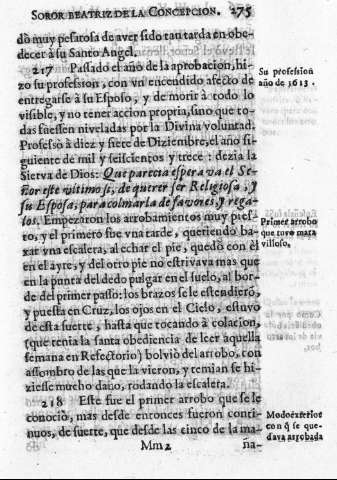 SOROR BEATRIZ DE LA CONCEPCION. 275
dò muy pesarosa de aver sido tan tarda en obe-
decer à su Santo Angel.
217 Passado el año de la aprobacion, hi-
zo su profession, con vn encendido afecto de
entregarse à su Esposo, y de morir à todo lo
visible, y no tener accion propria, sino que to-
das fuessen niveladas por la Divina voluntad.
Professò à diez y siete de Diziembre, el año si-
guiente de mil y seiscientos y trece: dezia la
Sierva de Dios: Que parecia esperava el Se-
ñor este vltimo si, de querer ser Religiosa, y
su Esposa, para colmarla de favores, y rega-
los. Empezaron los arrobamientos muy pres-
to, y el primero fue vna tarde, queriendo ba-
xar vna escalera, al echar el pie, quedò con èl
en el ayre, y del otro pie no estrivava mas que
en la punta del dedo pulgar en el suelo, al bor-
de del primer passo: los brazos se le estendierõ,
y puesta en Cruz, los ojos en el Cielo, estuvo
de esta suerte, hasta que tocando à colacion,
(que tenia la santa obediencia de leer aquella
semana en Refectorio) bolviò del arrobo, con
assombro de las que la vieron, y temian se hi-
ziesse mucho daño, rodando la escalera.
218 Este fue el primer arrobo que se le
conociò, mas desde entonces fueron conti-
nuos, de suerte, que desde las cinco de la ma-
Mm2 ña-
Su profession
año de 1613.
Primer arrobo
que tuvo mara
villoso,
Modo exterior
con q̃ se que-
dava arrobada